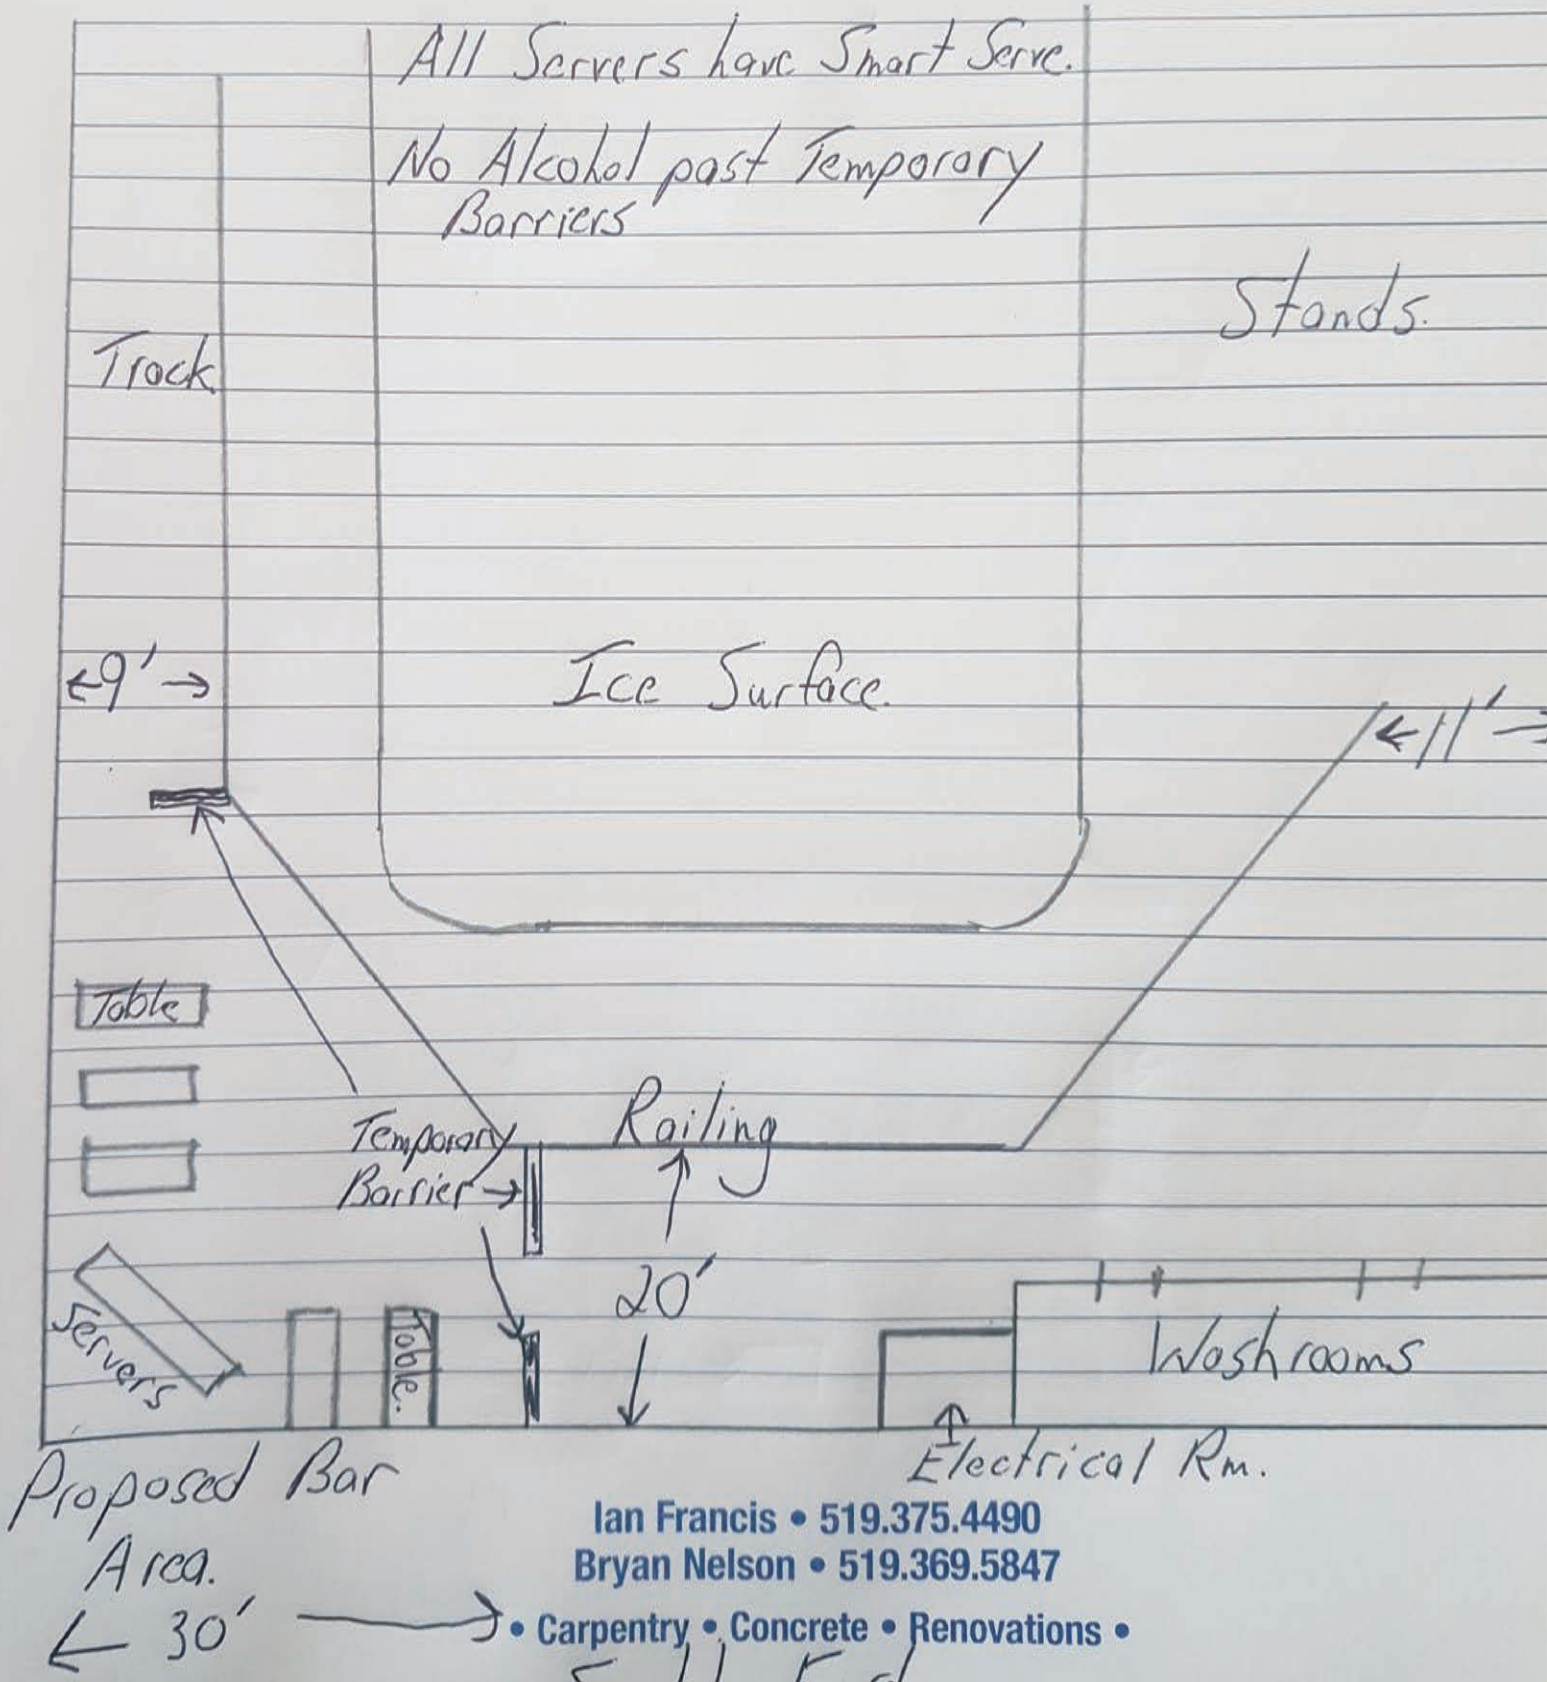 All Servers have Smart Serve.
No Alcohol past Temporary
Barriers
Stands.
Track
← 9' →
Ice Surface.
← 11' →
Table
Temporary
Barrier →
Railing
20'
Servers
Table.
Washrooms
Electrical Rm.
Proposed Bar
Area.
← 30' →
Ian Francis • 519.375.4490
Bryan Nelson • 519.369.5847
• Carpentry • Concrete • Renovations •